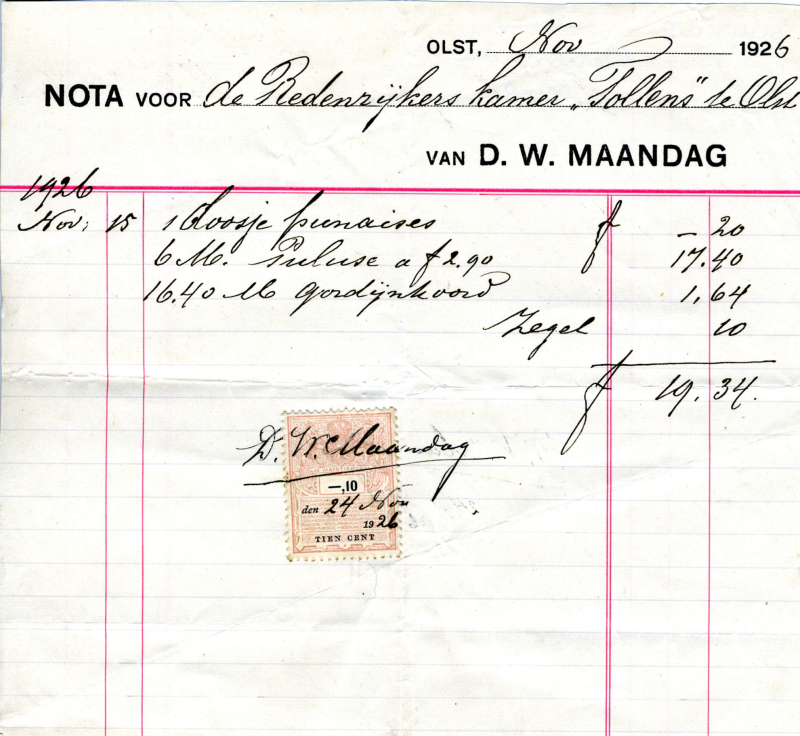 OLST, Nov 1926
NOTA VOOR de Rederijkers kamer „Tollens" te Olst
VAN D. W. MAANDAG
1926
Nov. 15 1 doosje punaises f – 20
6 M. Peluse a f 2.90 17.40
16.40 M gordijnkoord 1,64
Zegel 10
f 19.34.
D. W. Maandag
–,10
den 24 Nov
1926
TIEN CENT